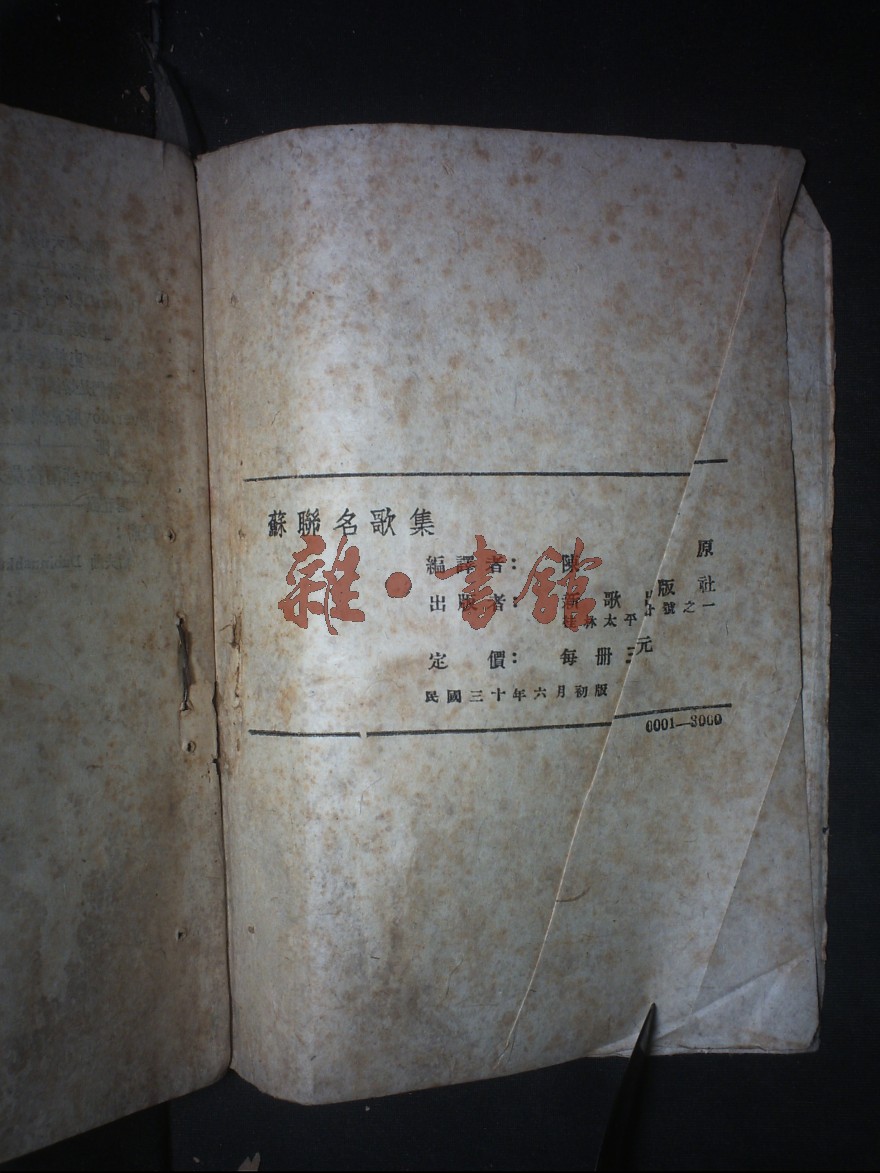 蘇聯名歌集
編譯者： 陳原
出版者： 新歌出版社
桂林太平 十號之一
定價： 每冊三元
民國三十年六月初版
0001—3000
雜·書館